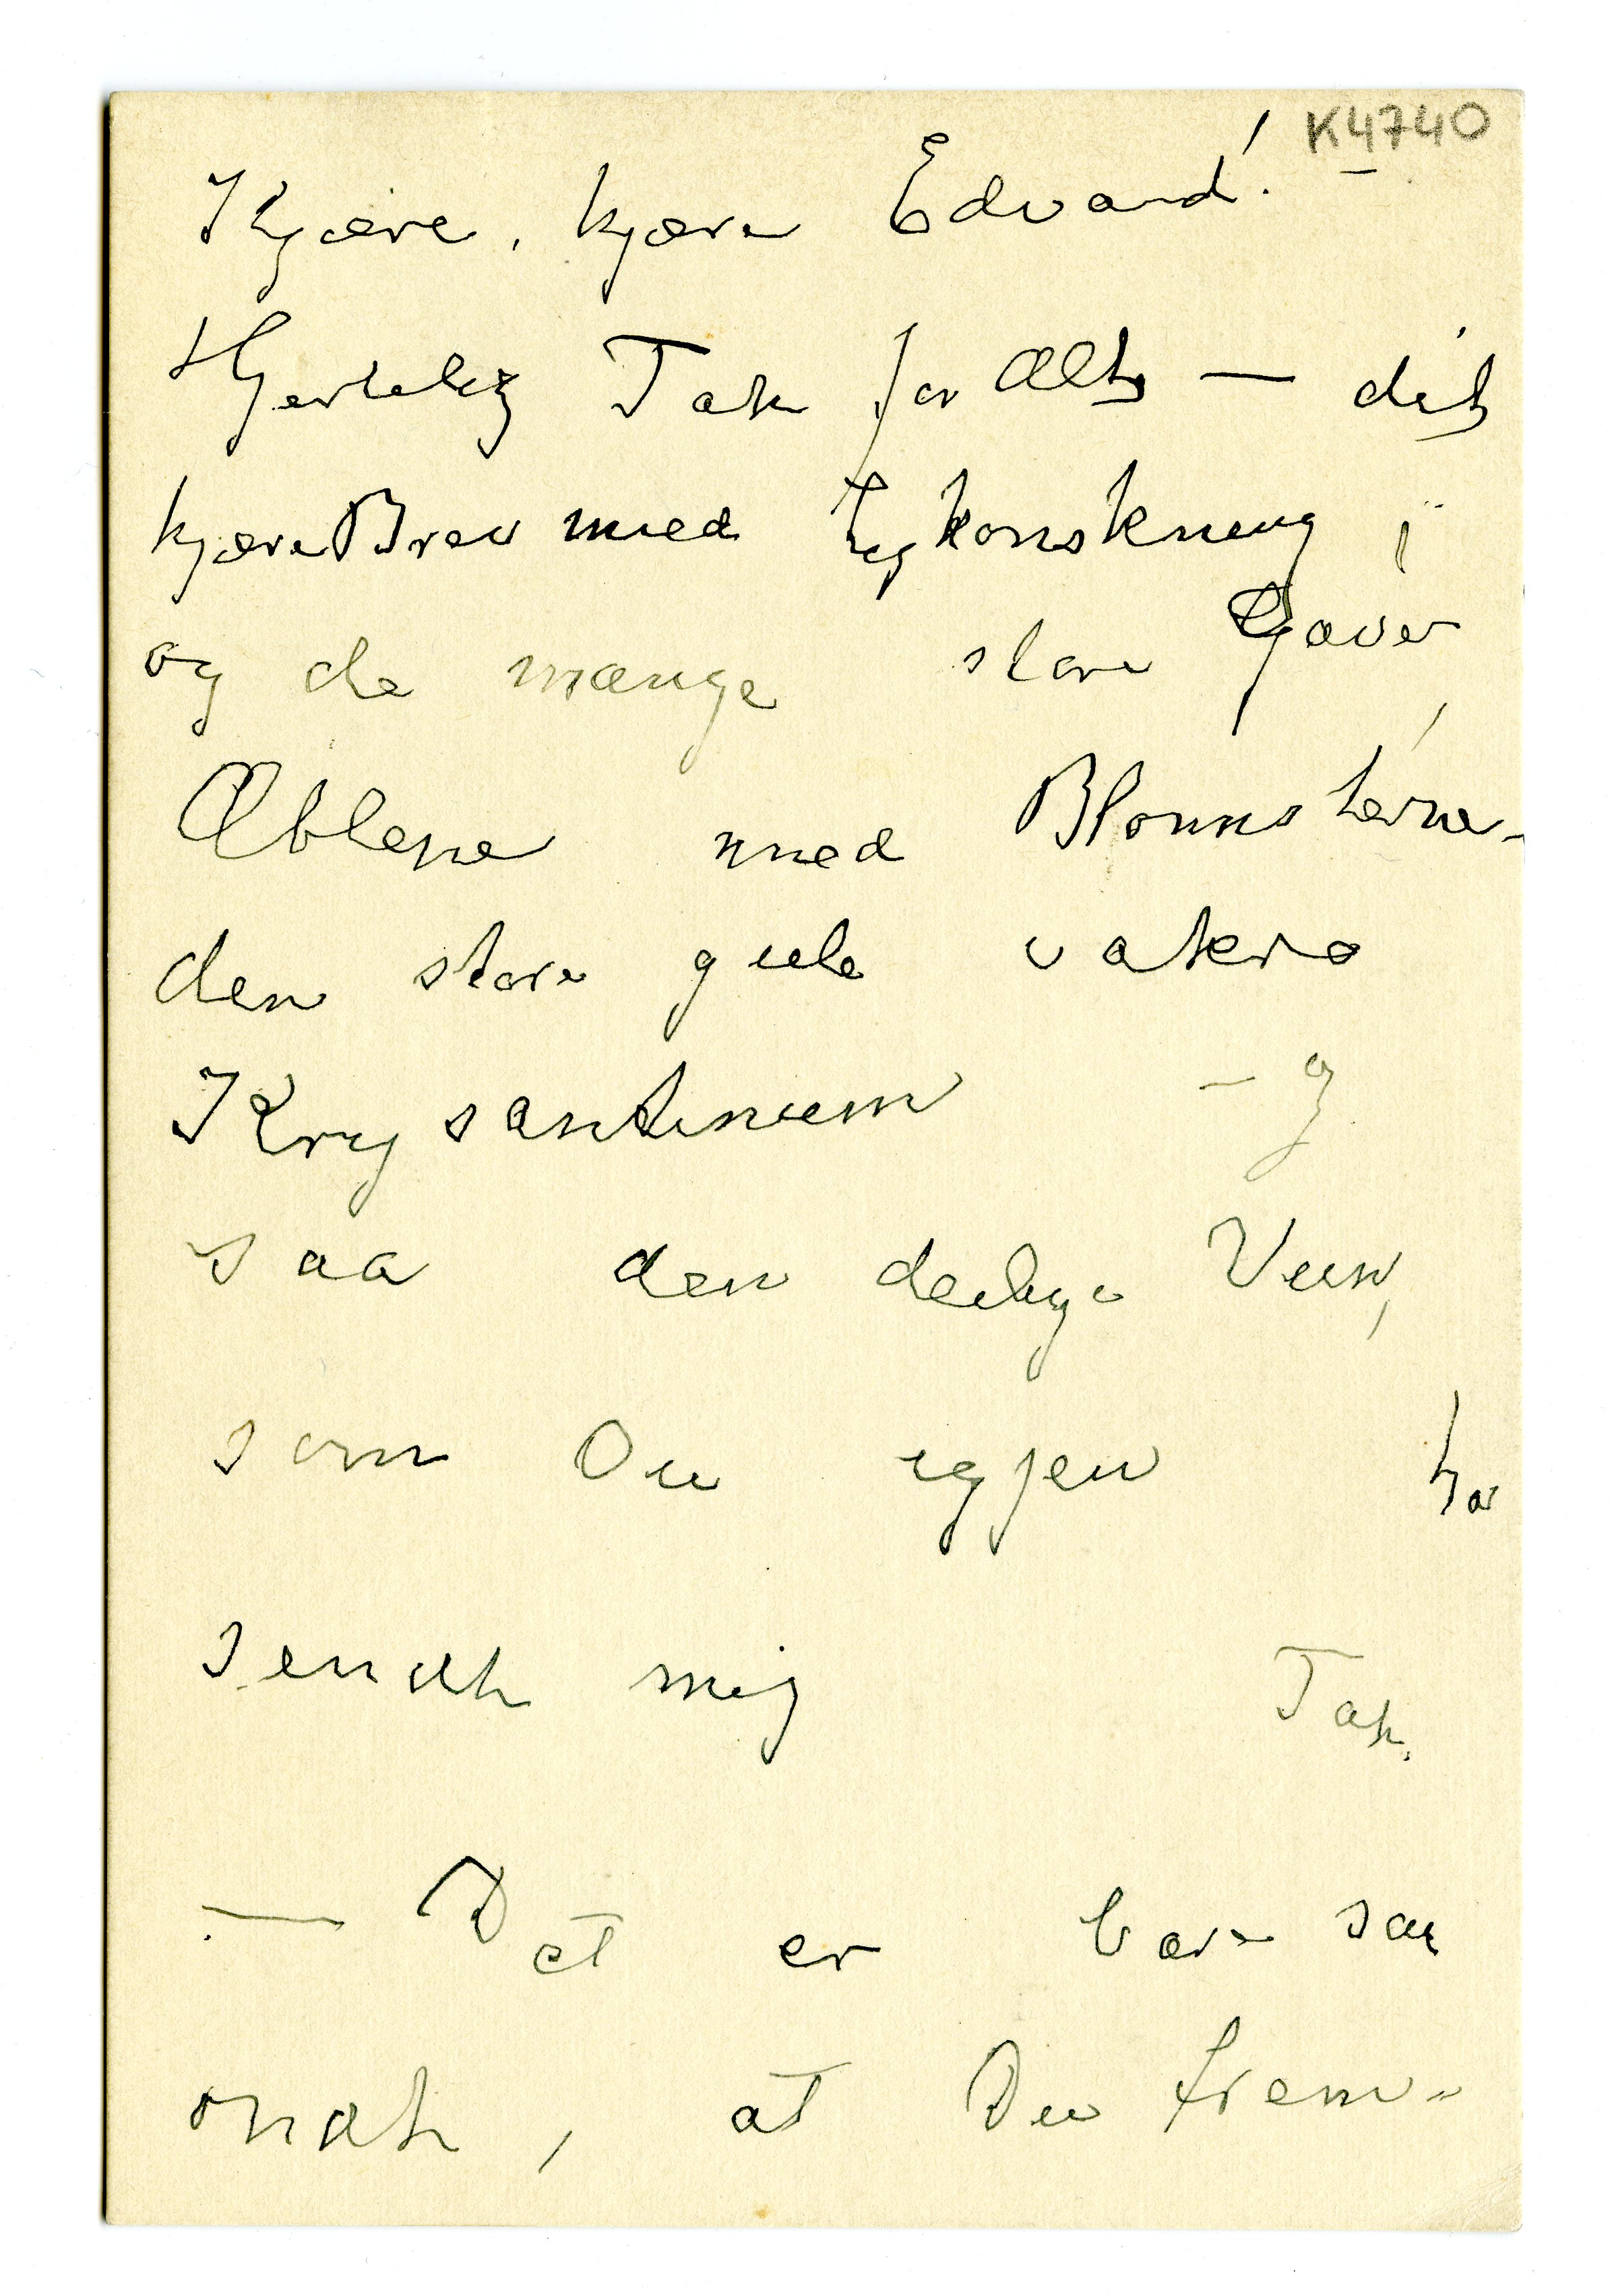 K4740
Kjære, kjære Edvard! –
Hjertelig Tak for Alt – dit
kjære Brev med Lykønskning i
og de mange store Gaver,
Æblene med Blomsterne –
den store gule vakre
Krysantimum – og
saa den deilige Vin,
som Du igjen har
sendt mig Tak.
– Det er bare saa
ondt, at Du frem-